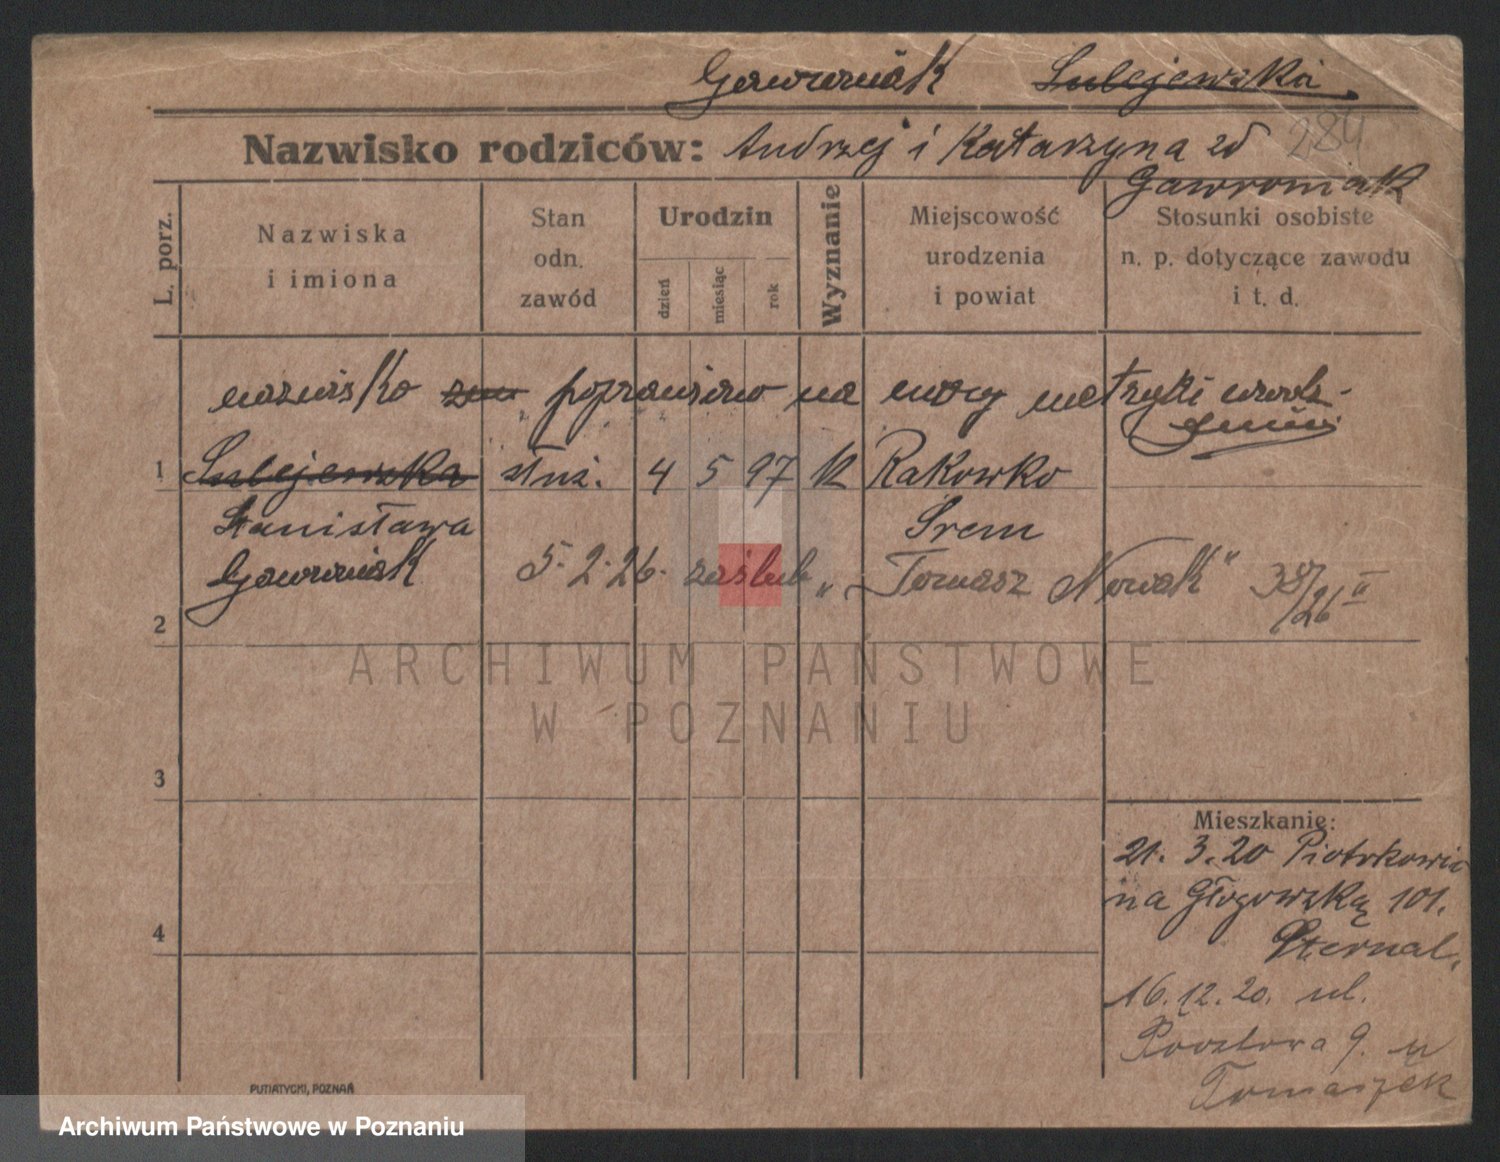 Gawroniak Lulejewska
Nazwisko rodziców: Andrzej i Katarzyna zd
284
Gawroniak
L. porz.
Nazwiska
i imiona
Stan
odn.
zawód
Urodzin
dzień
miesiąc
rok
Wyznanie
Miejscowość
urodzenia
i powiat
Stosunki osobiste
n. p. dotyczące zawodu
i t. d.
nazwisko poprawiono na mocy metryki urodz.
1 Lulejewska służ. 4 5 97 K Rakowko
Stanisława Śrem
Gawroniak 5.2.26. zaślub. „Tomasz Nowak" 38/26 II
2
3
4
Mieszkanie:
21. 3. 20 Piotrkowic
na Głogowską 101.
16. 12. 20. ul.
9. u
Tomaszek
PUTIATYCKI, POZNAŃ
ARCHIWUM PAŃSTWOWE
W POZNANIU
Archiwum Państwowe w Poznaniu